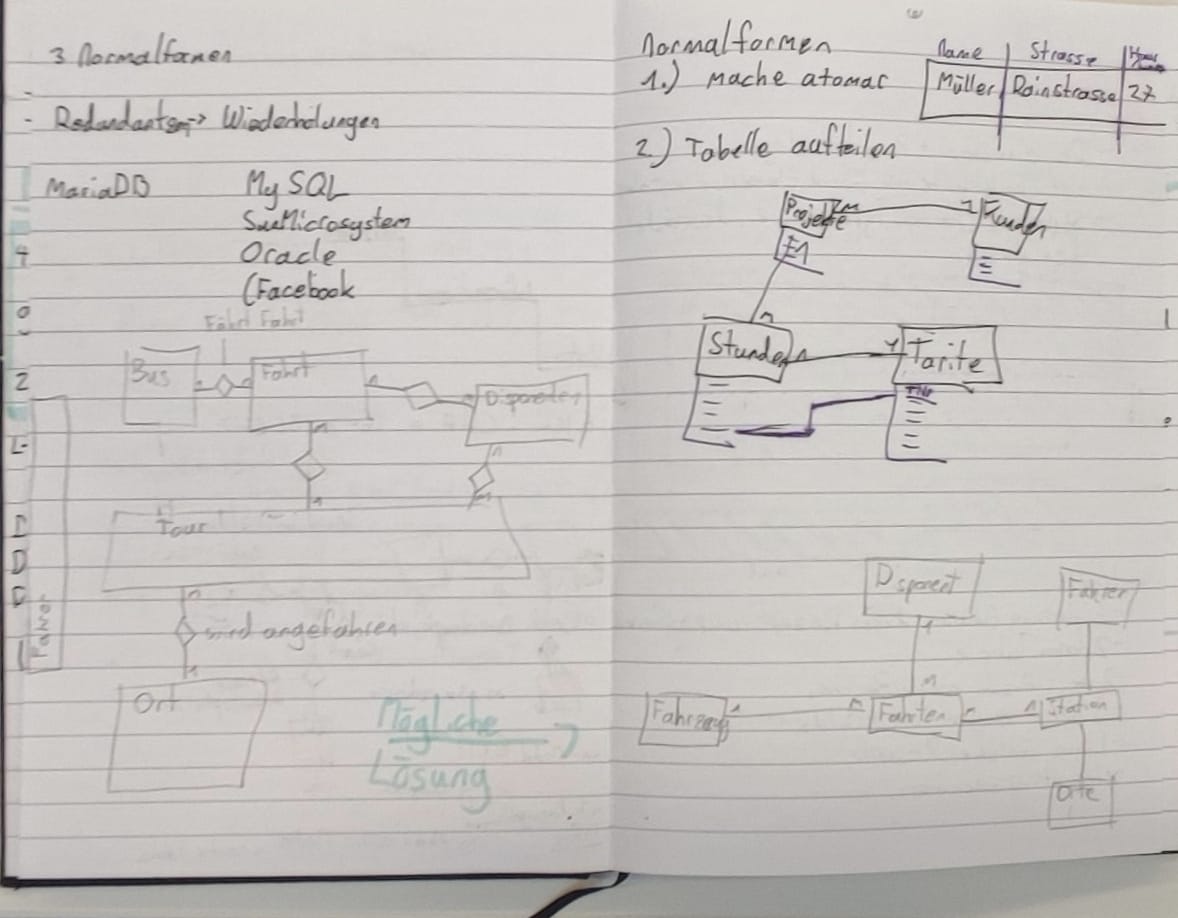 3 Normalformen
- Redandantsen -> Wiederhölungen
MariaDB
My SQL
SunMicrosystem
Oracle
(Facebook
Fährt Fahrt
Bus
Fahrt
Disponenten
Tour
Fahrer
wird angefahren
Ort
Mögliche
Lösung
Normalformen
1.) Mache atomar
Name Strasse
Müller Rainstrasse 27
2.) Tabelle aufteilen
Projekte n 1 Kunden
1
n
Stunden n 1 Tarife
Disponent Fahrer
1
n
Fahrzeug 1 n Fahrten n 1 Station
Orte